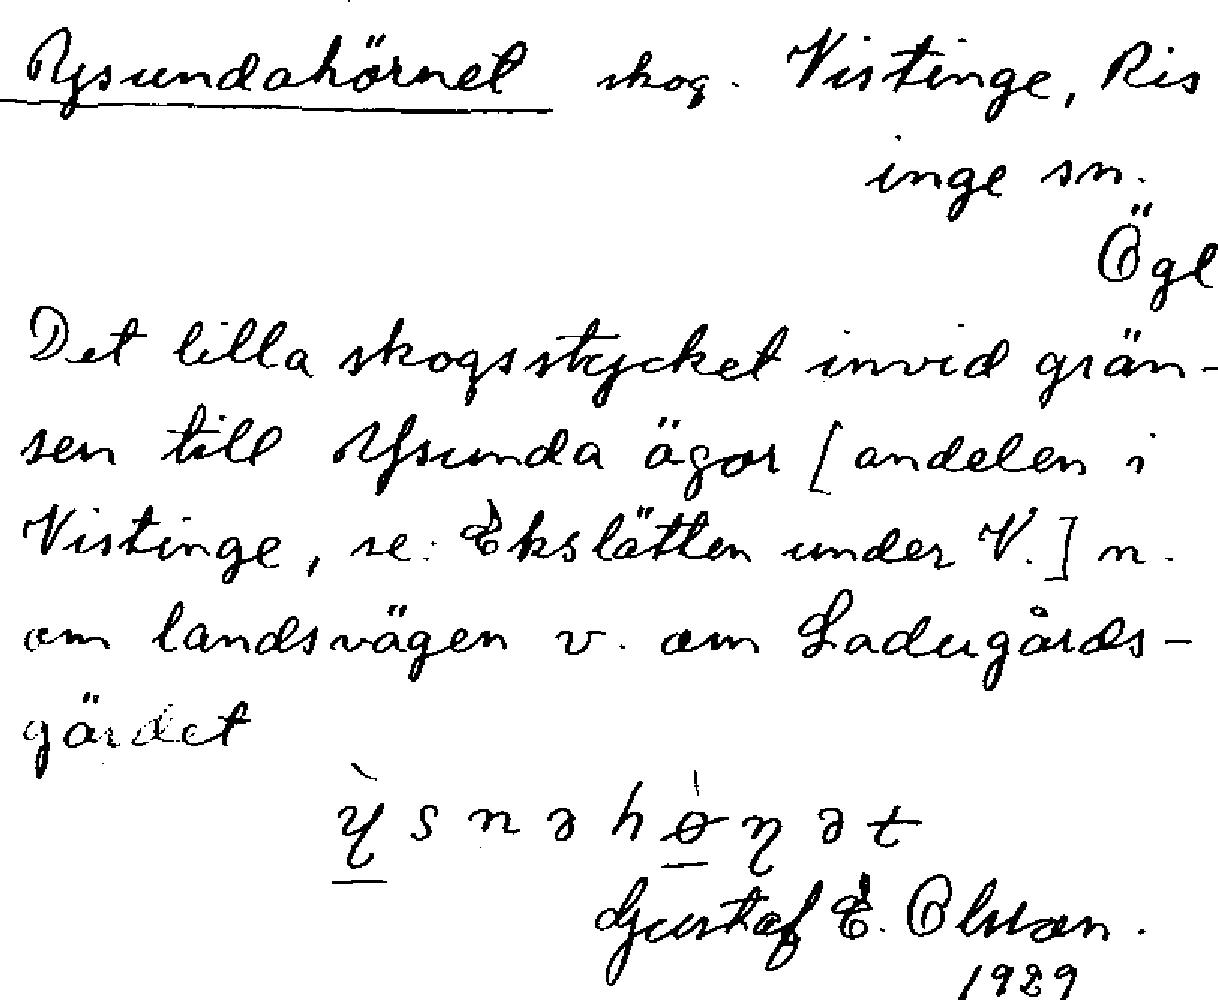 Ysundahörnet skog. Vistinge, Ris
inge sn.
Ögl
Det lilla skogsstycket invid grän-
sen till Ysunda ägor [andelen i
Vistinge, se: Ekslätten under V.] n.
om landsvägen v. om Ladugårds-
gärdet
ỳ̱ s n ə h ø̱̍ ɳ ə t
Gustaf E. Olsson.
1929